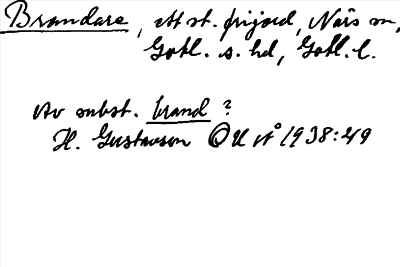 Brandare, ett st. prijord, Närs sn,
Gotl. s. hd, Gotl. l.
Av subst. brand?
H. Gustavson OUÅ 1938:49